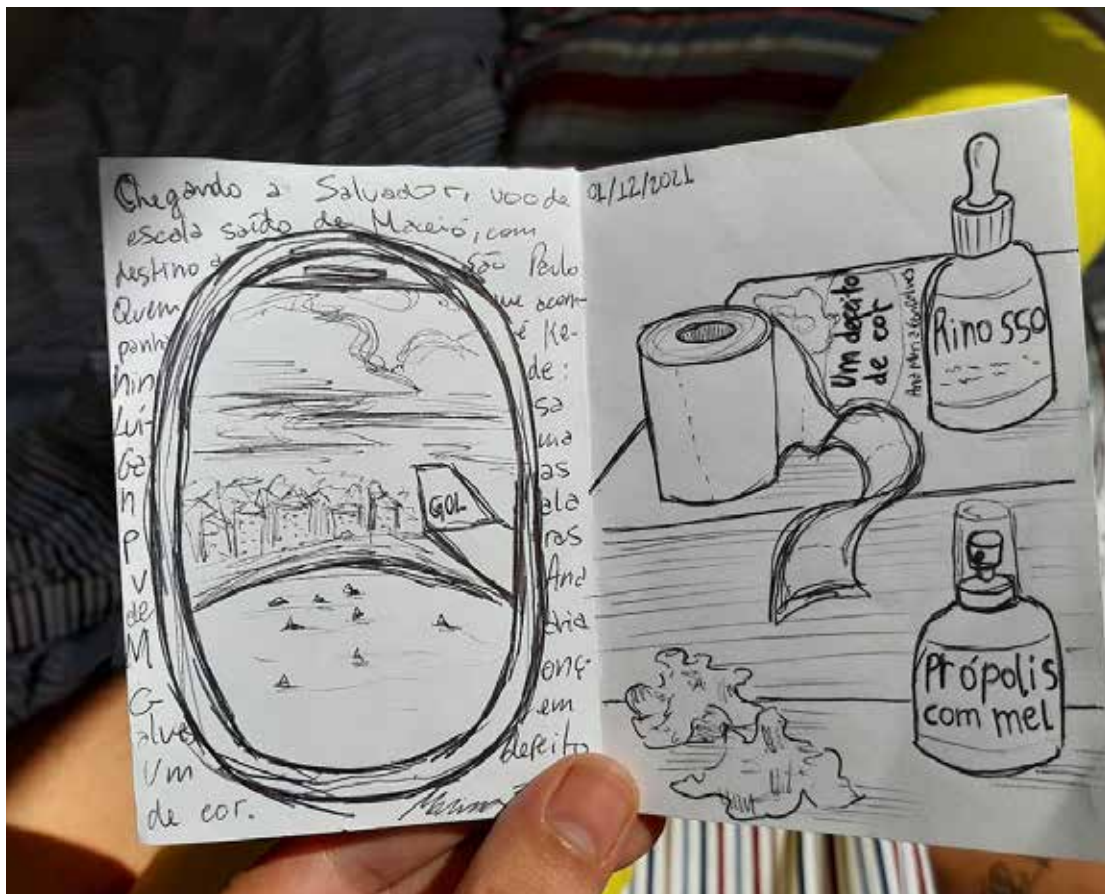 Chegando a Salvador, voo de
escala saído de Maceió, com
destino a São Paulo
Quem que acom-
panh é Ke-
hin de:
Luí- sa
Ga ma
n as
p ala
v ras
de Ana
M aria
G onç-
alves em
Um defeito
de cor.
GOL
01/12/2021
Um defeito
de cor
Ana Maria Gonçalves
Rino 550
Própolis
com mel